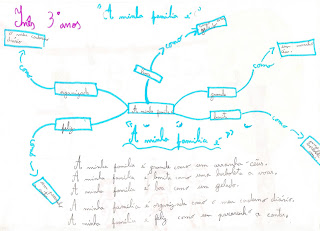 Inês 3º anos
"A minha família é"
como
como
como
boa
organizada
grande
A minha família
bonita
feliz
como
como
"A minha família é"
A minha família é grande como um arranha-céus.
A minha família é bonita como uma borboleta a voar.
A minha família é boa como um gelado.
A minha família é organizada como o meu caderno diário.
A minha família é feliz como um passarinho a cantar.